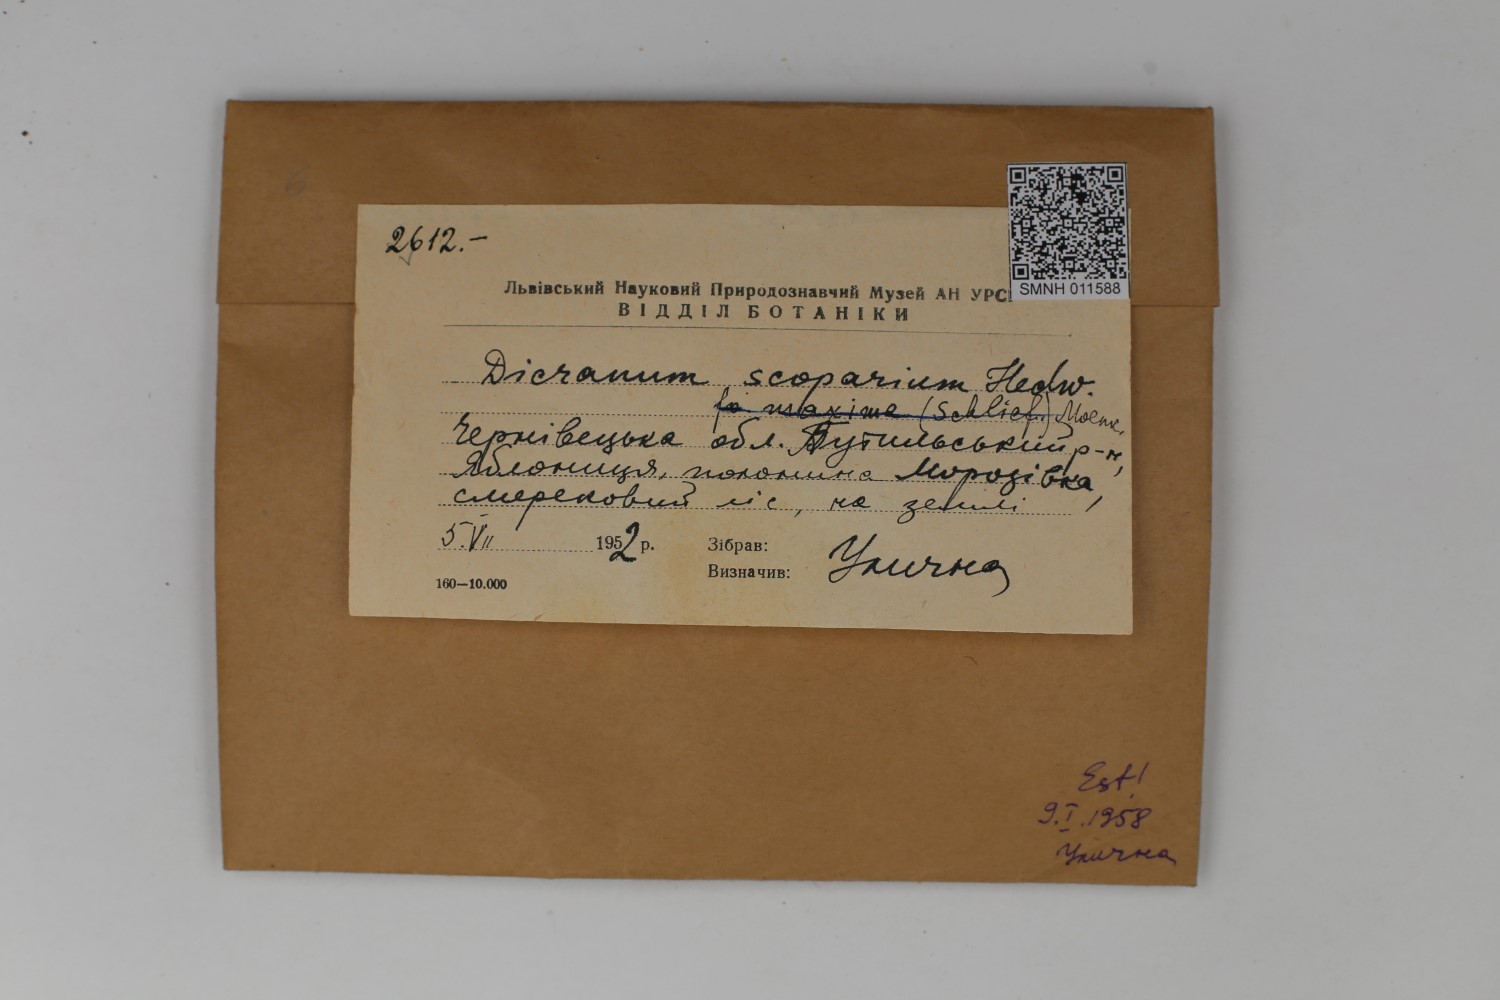 2612.-
SMNH 011588
Львівський Науковий Природознавчий Музей АН УРС
ВІДДІЛ БОТАНІКИ
Dicranum scoparium Hedw.
fo maxima (Schlief.) Moenk.
Чернівецька обл. Путильський р-н,
Яблониця, полонина Морозівка,
смерековий ліс, на землі
5.VII 1952 р.
Зібрав:
Визначив: Улична
160—10.000
Est!
9.I.1958
Улична